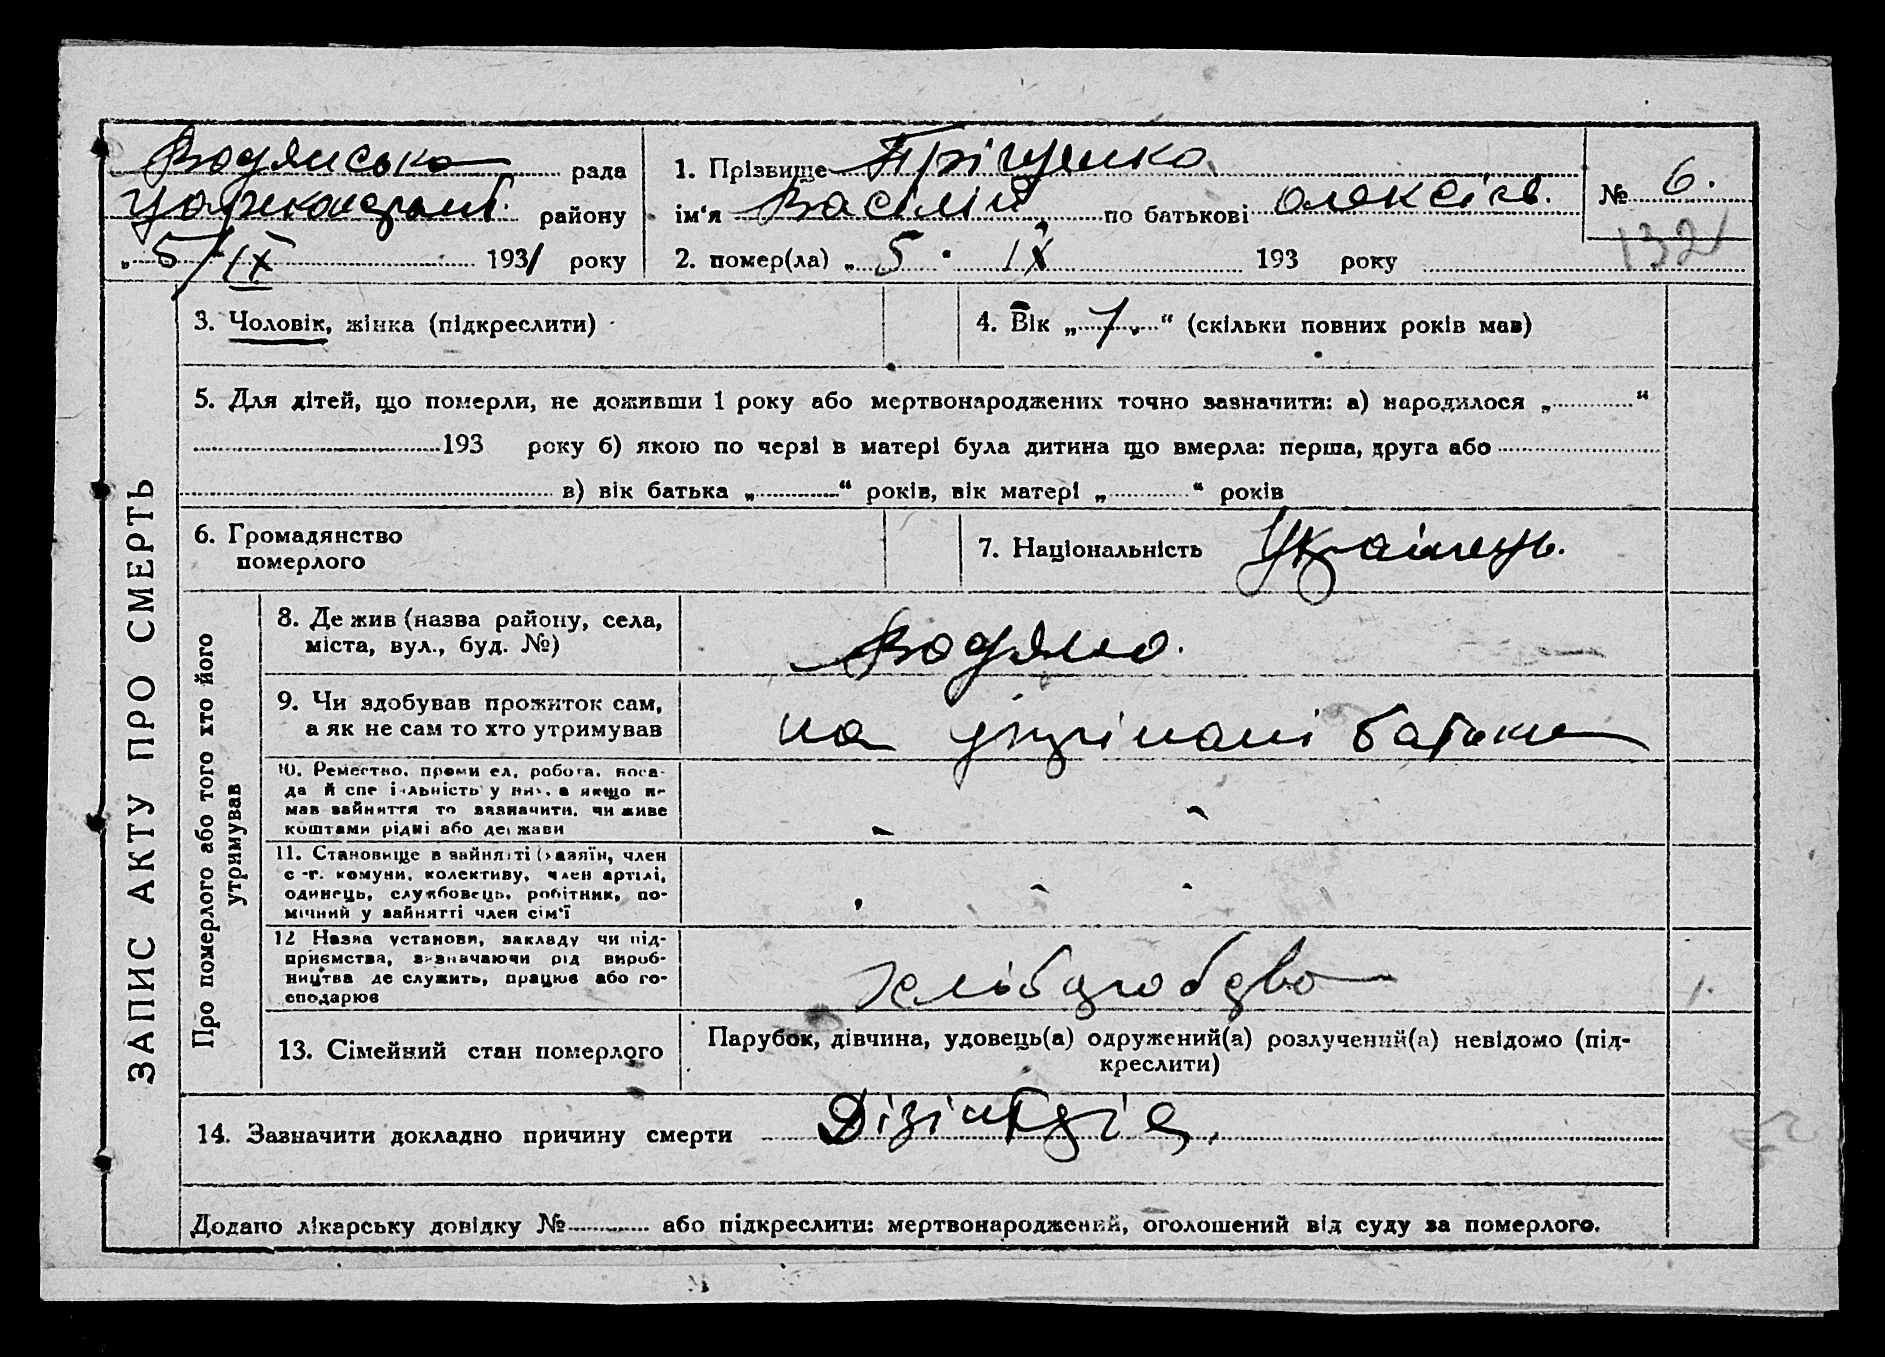 Водянська рада
району
„5/IX 1931 року
1. Прізвище Тріщенко
ім'я Васілій по батькові Олексієв.
2. помер(ла) „5" IX 193 року
№ 6.
132
ЗАПИС АКТУ ПРО СМЕРТЬ
3. Чоловік, жінка (підкреслити)
4. Вік „7." (скільки повних років мав)
5. Для дітей, що померли, не доживши 1 року або мертвонароджених точно зазначити: а) народилося „ "
193 року б) якою по черзі в матері була дитина що вмерла: перша, друга або
в) вік батька „ " років, вік матері „ " років
6. Громадянство
померлого
7. Національність Українець.
Про померлого або того хто його
утримував
8. Де жив (назва району, села,
міста, вул., буд. №)
Водяно.
9. Чи здобував прожиток сам,
а як не сам то хто утримував
на утрімані батька
10. Ремество, промисел, робота, поса-
да й спеціяльність у них, а якщо не
мав зайняття то зазначити, чи живе
коштами рідні або держави
11. Становище в зайнятті (хазяїн, член
с.-г. комуни, колективу, член артілі,
одинець, службовець, робітник, по-
мічний у зайнятті член сім'ї
12 Назва установи, закладу чи під-
приємства, зазначаючи рід вироб-
ництва де служить, працює або го-
сподарює
13. Сімейний стан померлого
Парубок, дівчина, удовець(а) одружений(а) розлучений(а) невідомо (під-
креслити)
14. Зазначити докладно причину смерти Дізінтерія.
Додано лікарську довідку № або підкреслити: мертвонароджений, оголошений від суду за померлого.